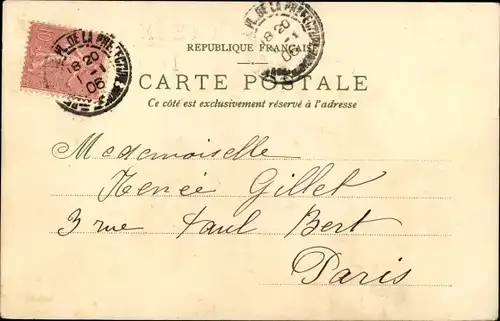 PL. DE LA PRÉFECTURE
18 20
1 - 1
06
RÉPUBLIQUE FRANÇAISE
CARTE POSTALE
Ce côté est exclusivement réservé à l'adresse
Mademoiselle
Renée Gillet
3 rue Paul Bert
Paris